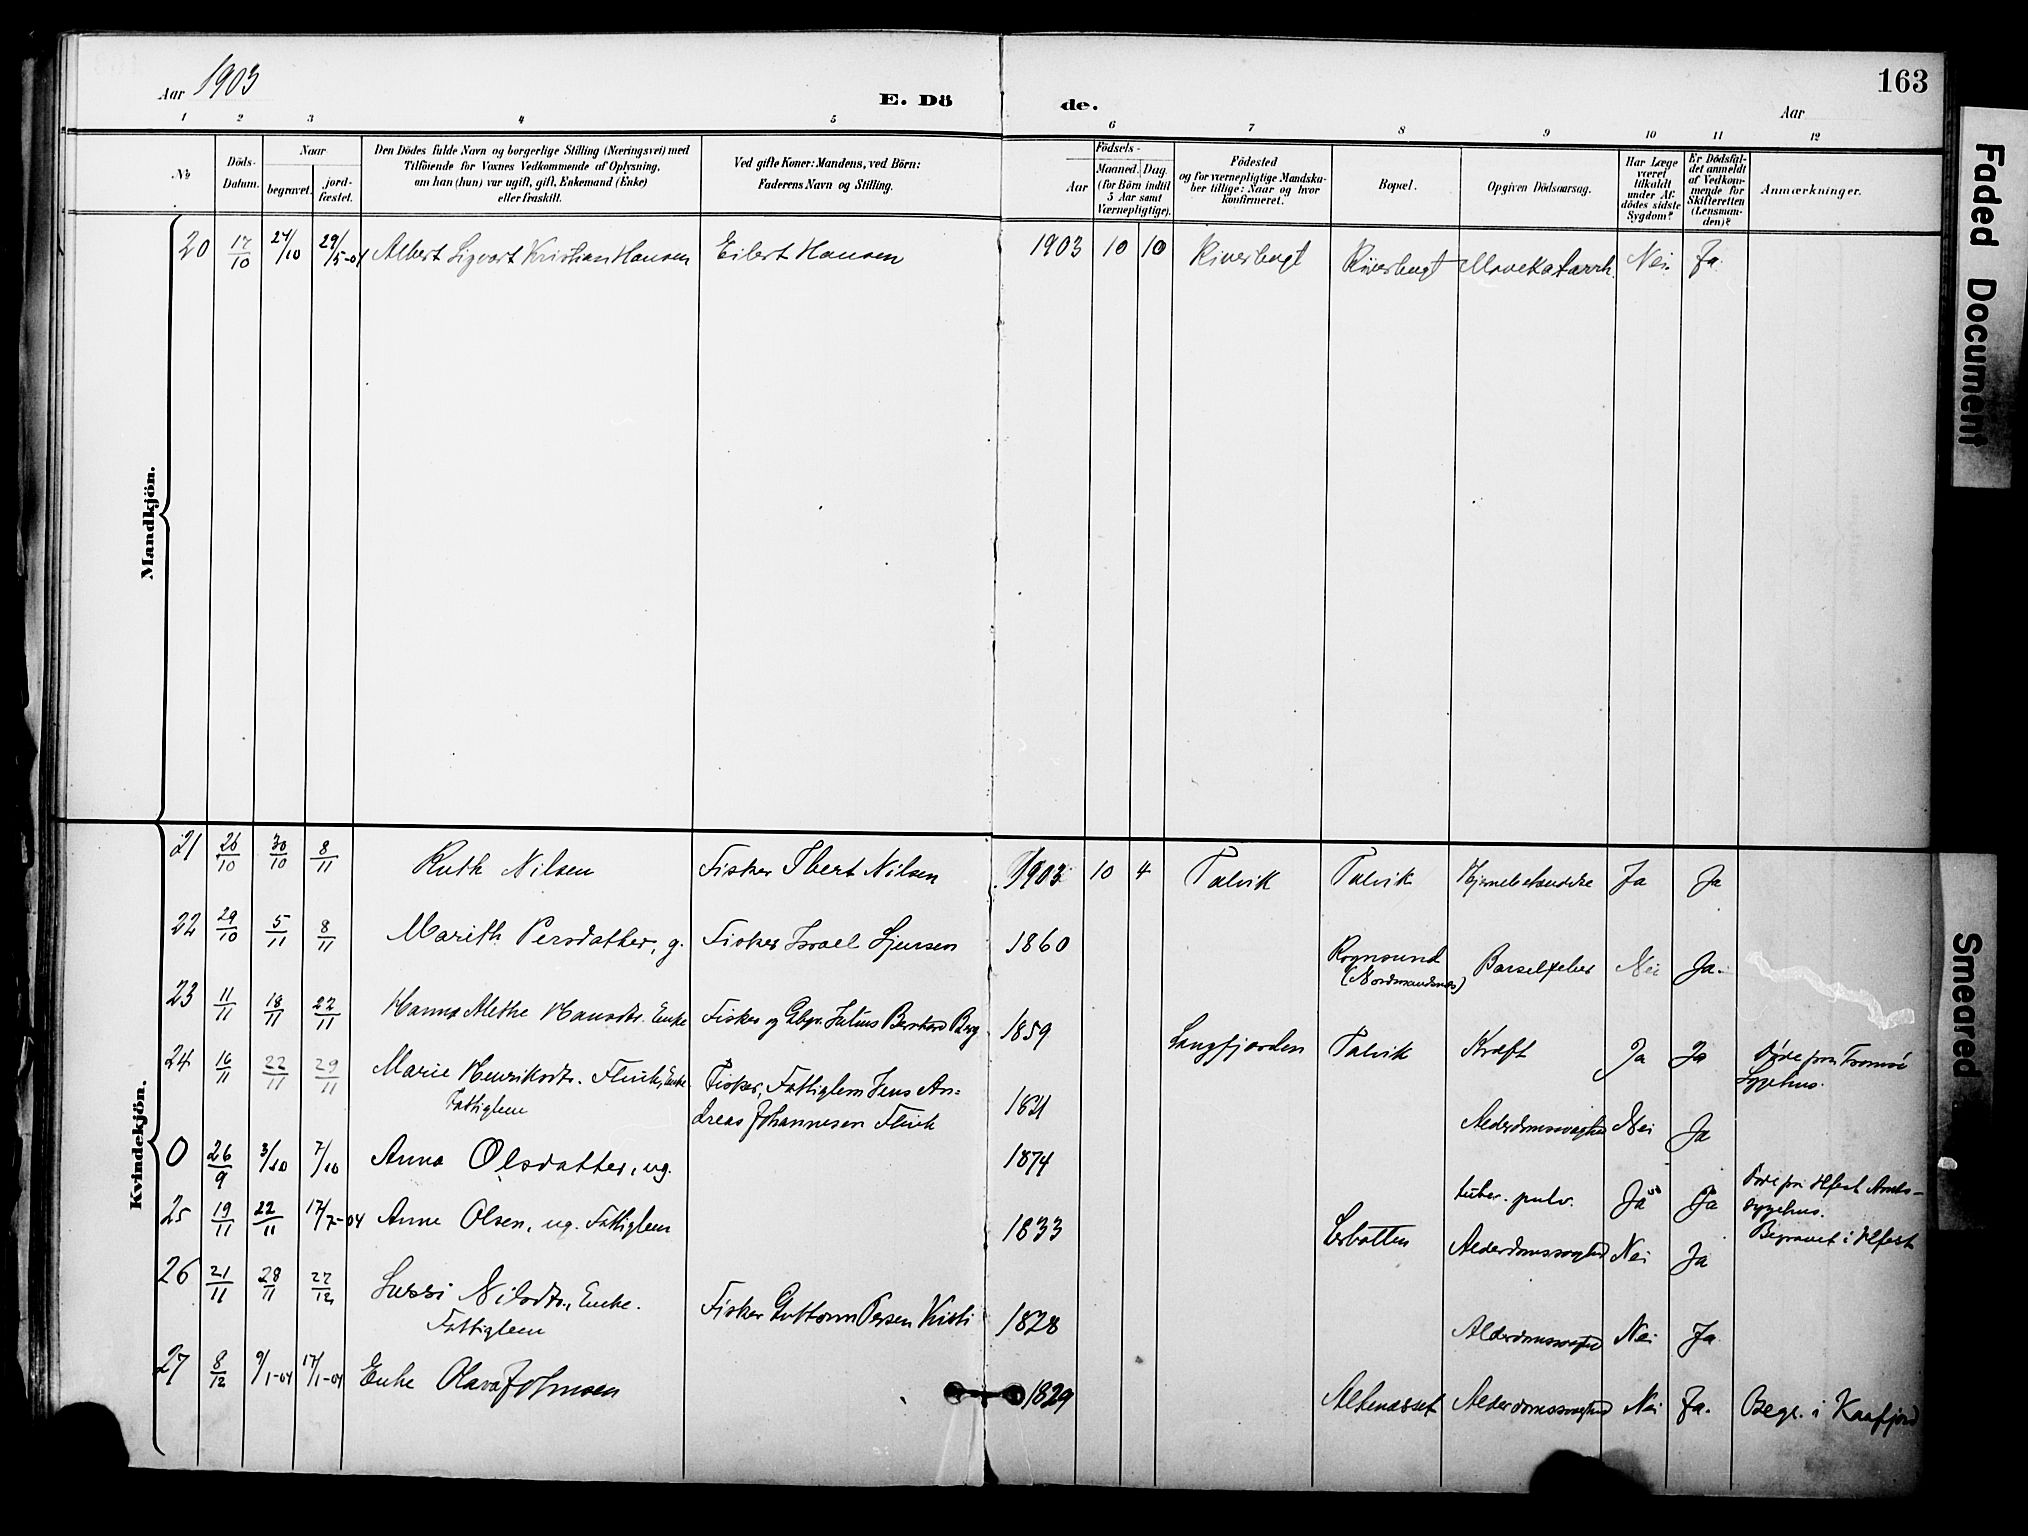 Aar 1903
E. Dö
de.
Aar
163
1 2 3 4 5 6 7 8 9 10 11 12
No
Döds-
Datum.
Naar
begravet.
jord-
fæstet.
Den Dödes fulde Navn og borgerlige Stilling (Næringsvei) med
Tilföiende for Voxnes Vedkommende af Oplysning,
om han (hun) var ugift, gift, Enkemand (Enke)
eller fraskilt.
Ved gifte Koner: Mandens, ved Börn:
Faderens Navn og Stilling.
Födsels-
Aar
Maaned. Dag
(for Börn indtil
5 Aar samt
Værnepligtige).
Födested
og for værnepligtige Mandska-
ber tillige: Naar og hvor
konfirmeret.
Bopæl.
Opgiven Dödsaarsag.
Har Læge
været
tilkaldt
under Af-
dödes sidste
Sygdom?
Er Dödsfal-
det anmeldt
af Vedkom-
mende for
Skifteretten
(Lensman-
den)?
Anmærkninger.
Mandkjön.
20 17/10 24/10 29/5-04 Albert Sigvart Kristian Hansen Eilert Hansen 1903 10 10 Riverbugt Riverbugt Mavekatarrh. Nei Ja
Kvindekjön.
21 26/10 30/10 8/11 Ruth Nilsen Fisker Ibert Nilsen 1903 10 4 Talvik Talvik Ja Ja
22 29/10 5/11 8/11 Marith Persdatter, g. Fisker Israel 1860 Rognsund Barselfeber Nei Ja.
23 11/11 18/11 22/11 Hanna Methe Hansdtr. Enke Fisker og Gbr. Julius Bernhard Berg 1859 Langfjorden Talvik Kræft Ja Ja Døde paa Tromsø
Sygehus.
24 16/11 22/11 29/11 Marie Henriksdtr. Enke Fisker, Fattiglem Jens An-
Fattiglem dreas Johannesen 1821 Alderdomssvaghed Nei Ja
0 26/9 3/10 7/10 Anna Olsdatter, ug. 1874 tuber. pulm. Ja Ja Døde paa Hfest Amts-
sygehus.
Begravet i Hfest
25 19/11 22/11 17/7-04 Anne Olsen, ug. Fattiglem 1833 Alderdomssvaghed Nei Ja
26 21/11 28/11 22/12 Sussi Nilsdtr., Enke.
Fattiglem Fisker Guttorm Persen 1828 Alderdomssvaghed Nei Ja
27 8/12 9/1-04 17/1-04 Enke Olava Johnsen 1829 Altenæsset Alderdomssvaghed Nei Ja. Begr. i Kaafjord
Faded Document
Smeared